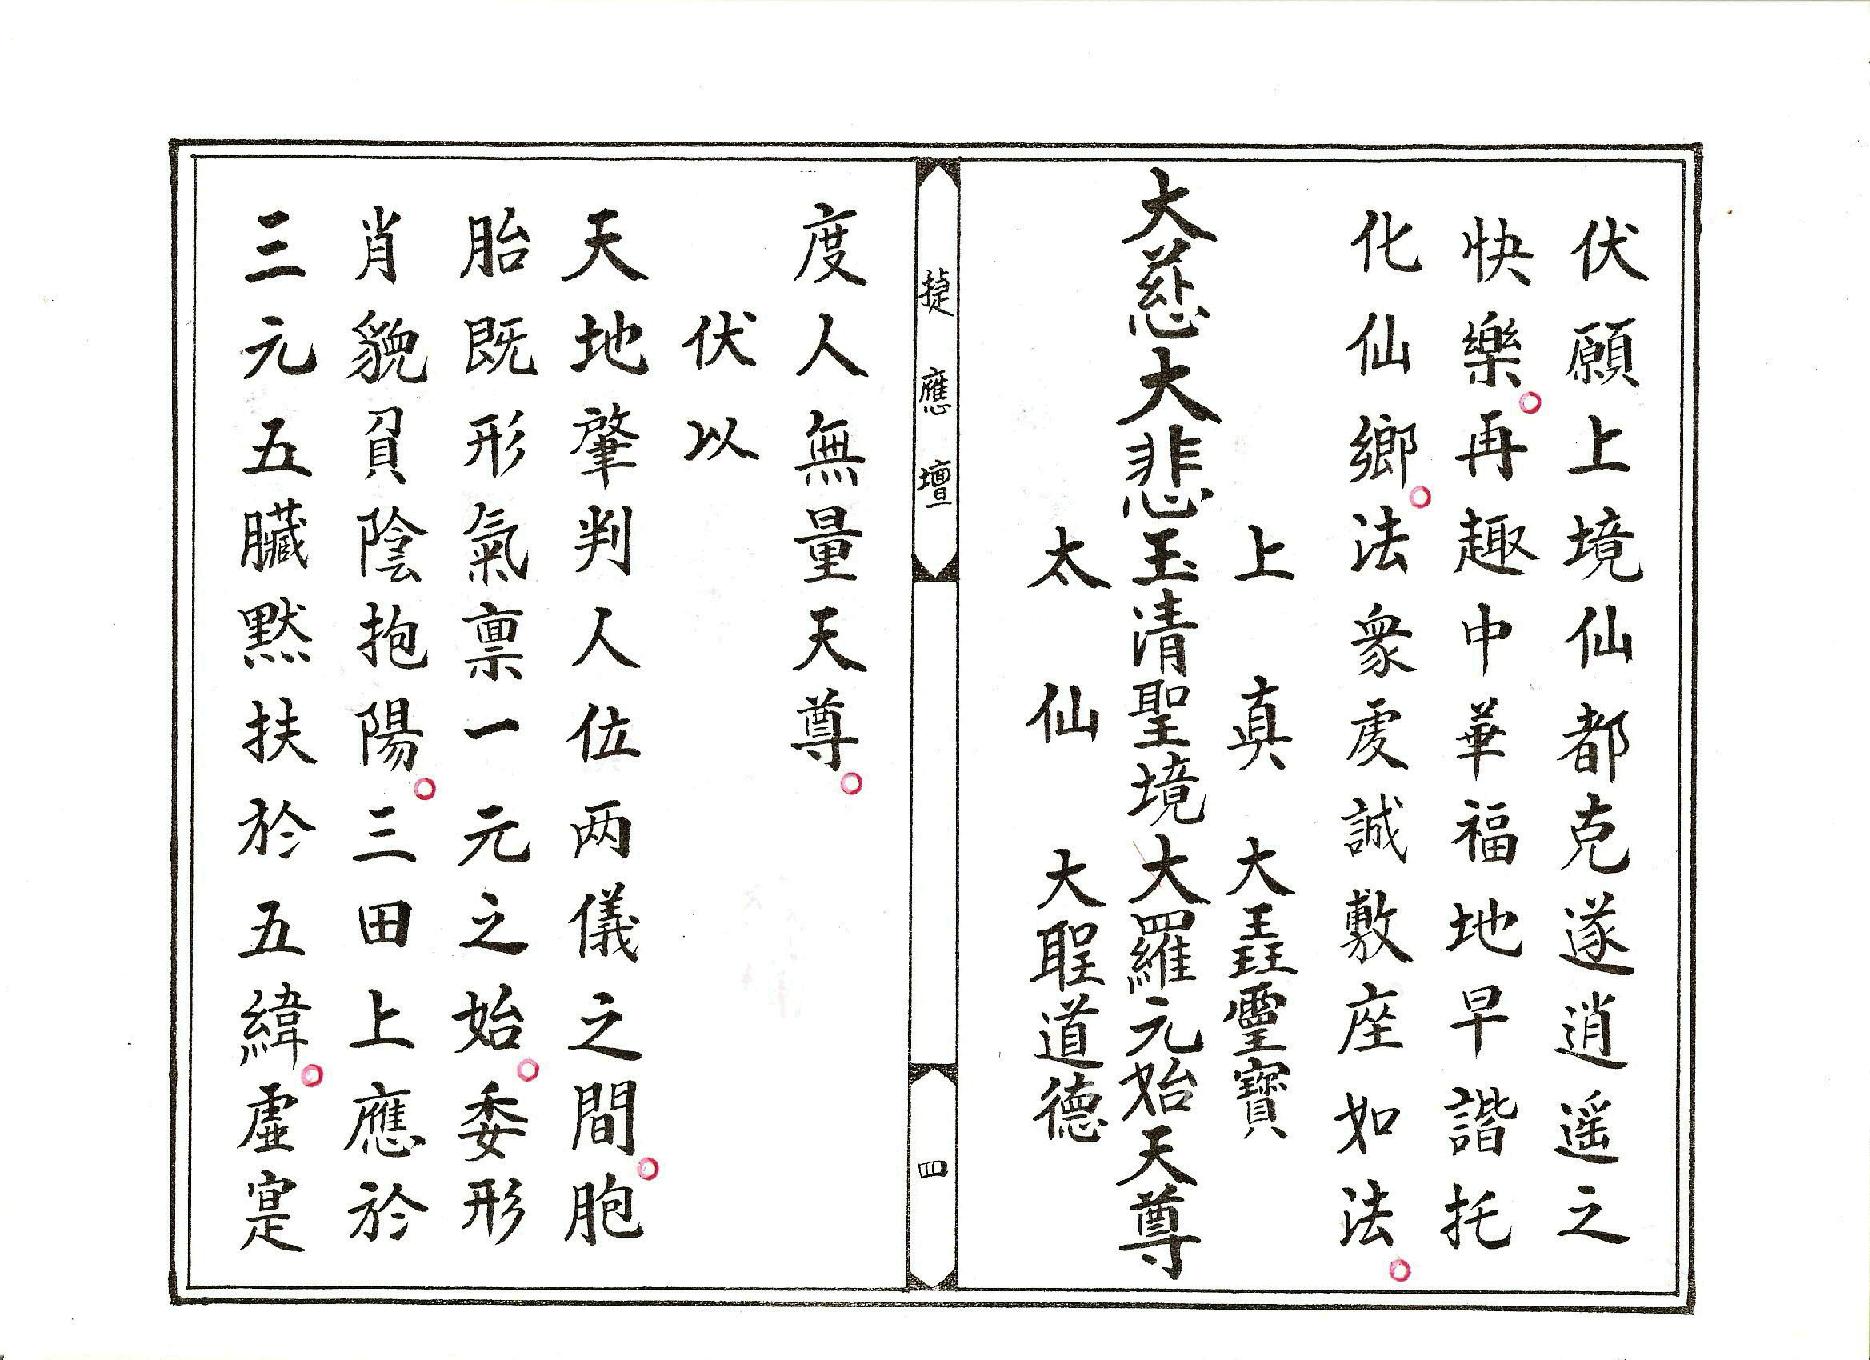 伏願上境仙都克遂逍遥之
快樂。再趣中華福地早諧托
化仙鄉。法衆虔誠敷座如法。
上真大靈寶
大慈大悲玉清聖境大羅元始天尊
太仙大聖道德
捷應壇
四
度人無量天尊。
伏以
天地肇判人位两儀之間。胞
胎既形氣禀一元之始。委形
肖貌負陰抱陽。三田上應於
三元五臟黙扶於五緯。虚寔